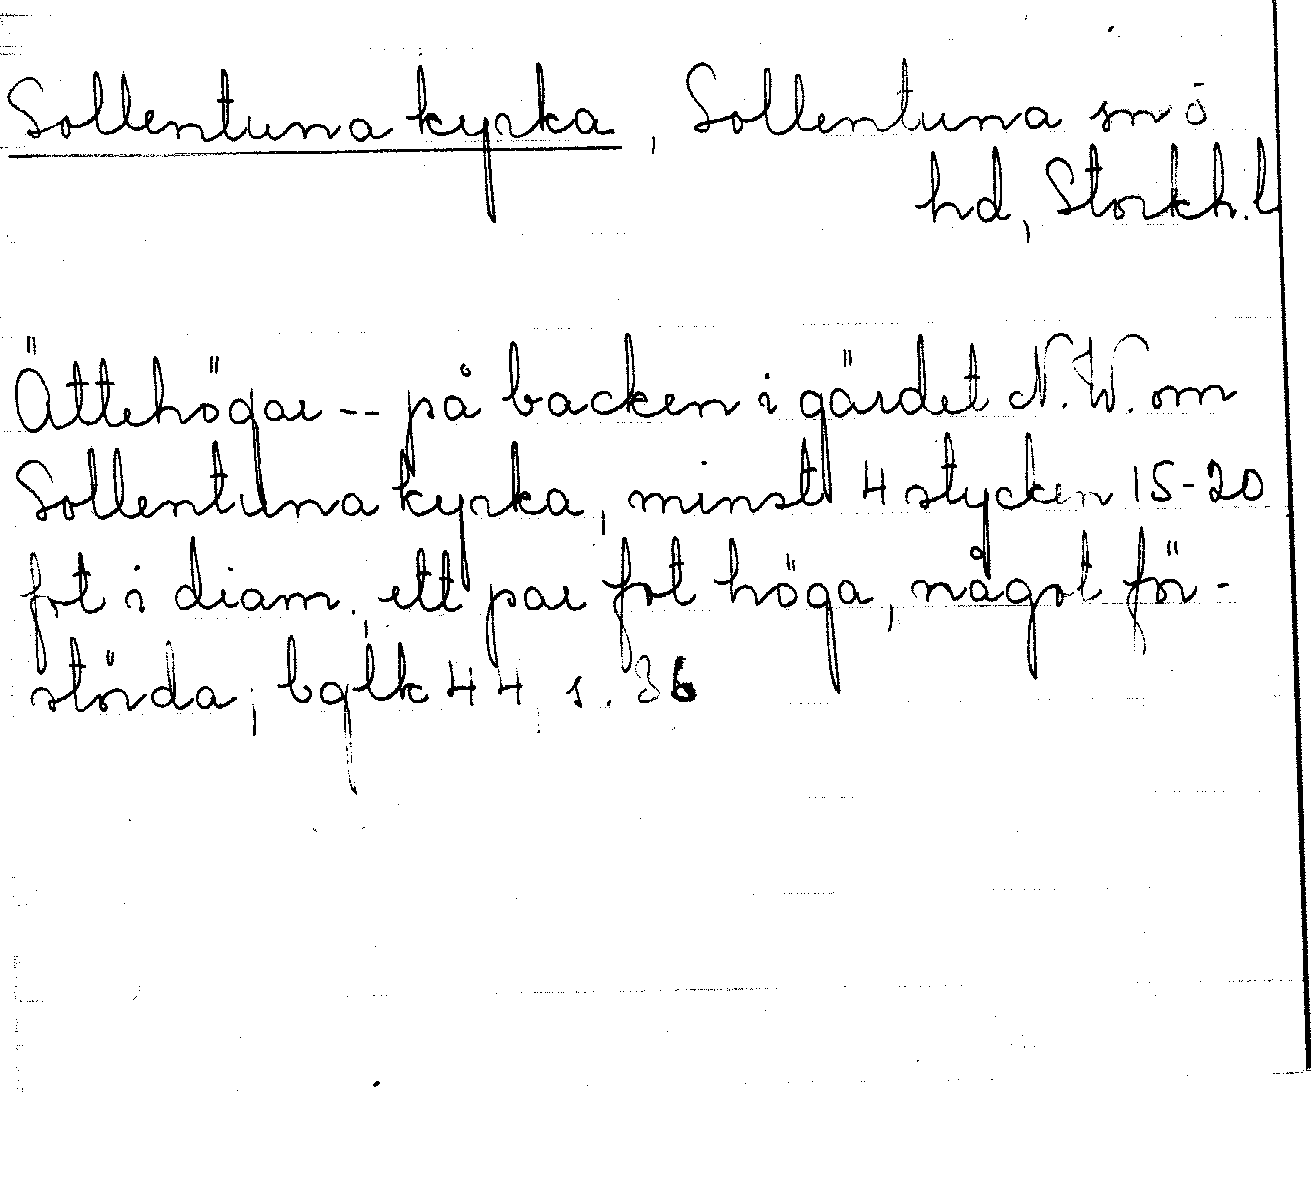 Sollentuna kyrka, Sollentuna sn o
hd, Stockh. l
Ättehögar -- på backen i gärdet N.W. om
Sollentuna kyrka, minst 4 stycken 15-20
fot i diam. ett par fot höga, något för-
störda; bglk 44, s. 36